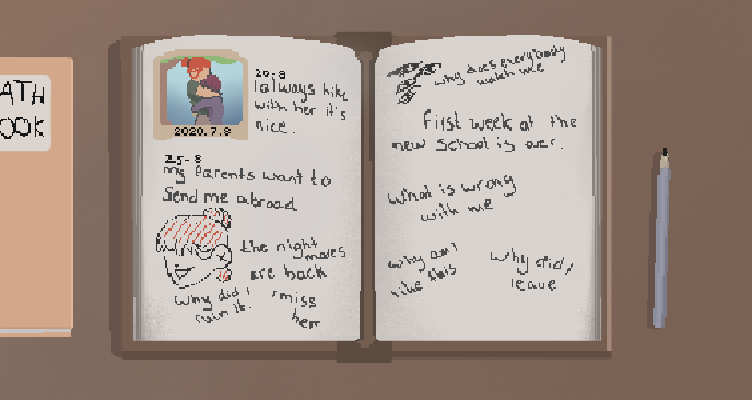 ATH
OOK
2020.7.9
20-8
I always hike
with her it's
nice.
25-8
my Parents want to
Send me abroad
the night
mares
are back
why did I
ruin it.
I miss
her
why does everybody
watch me
First week at the
new School is over.
What is wrong
with me
why am I
like this
why did I
leave